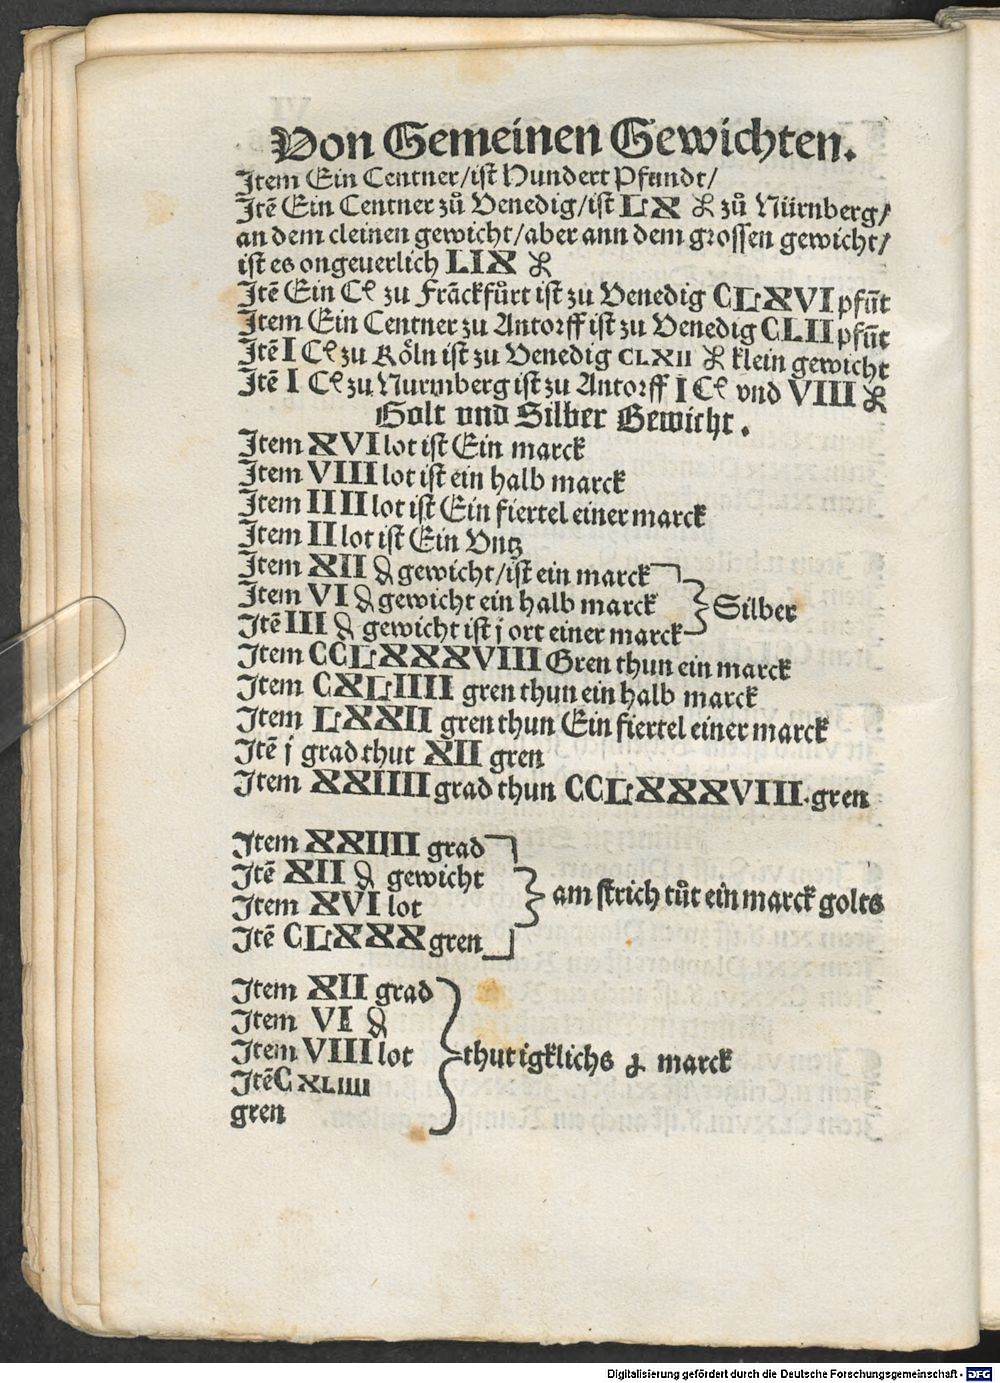 Von Gemeinen Gewichten.
Item Ein Centner/ist Hundert Pfundt/
Itē Ein Centner zů Venedig/ist LX ℔ zů Nürnberg/
an dem cleinen gewicht/aber ann dem grossen gewicht/
ist es ongeuerlich LIX ℔
Itē Ein Cē zu Frāckfůrt ist zu Venedig CLXVI pfūt
Item Ein Centner zu Antorff ist zu Venedig CLII pfūt
Itē I Cē zu Kőln ist zu Venedig CLXII ℔ klein gewicht
Itē I Cē zu Nurmberg ist zu Antorff I Cē vnd VIII ℔
Golt vnd Silber Gewicht.
Item XVI lot ist Ein marck
Item VIII lot ist ein halb marck
Item IIII lot ist Ein fiertel einer marck
Item II lot ist Ein Vntz
Item XII ₰ gewicht/ist ein marck
Item VI ₰ gewicht ein halb marck
Itē III ₰ gewicht ist j ort einer marck
Silber
Item CCLXXXVIII Gren thun ein marck
Item CXLIIII gren thun ein halb marck
Item LXXII gren thun Ein fiertel einer marck
Itē j grad thut XII gren
Item XXIIII grad thun CCLXXXVIII.gren
Item XXIIII grad
Itē XII ₰ gewicht
Item XVI lot
Itē CLXXX gren
am strich tůt ein marck golts
Item XII grad
Item VI ₰
Item VIII lot
Itē C XLIIII
gren
thut igklichs marck
Digitalisierung gefördert durch die Deutsche Forschungsgemeinschaft - DFG